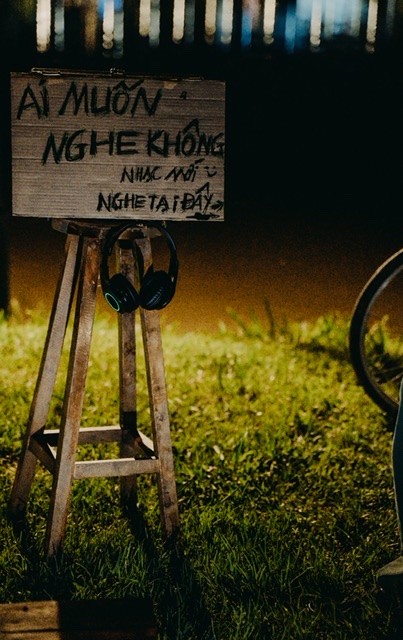 AI MUỐN
NGHE KHÔNG
NHẠC MỚI
NGHE TẠI ĐÂY